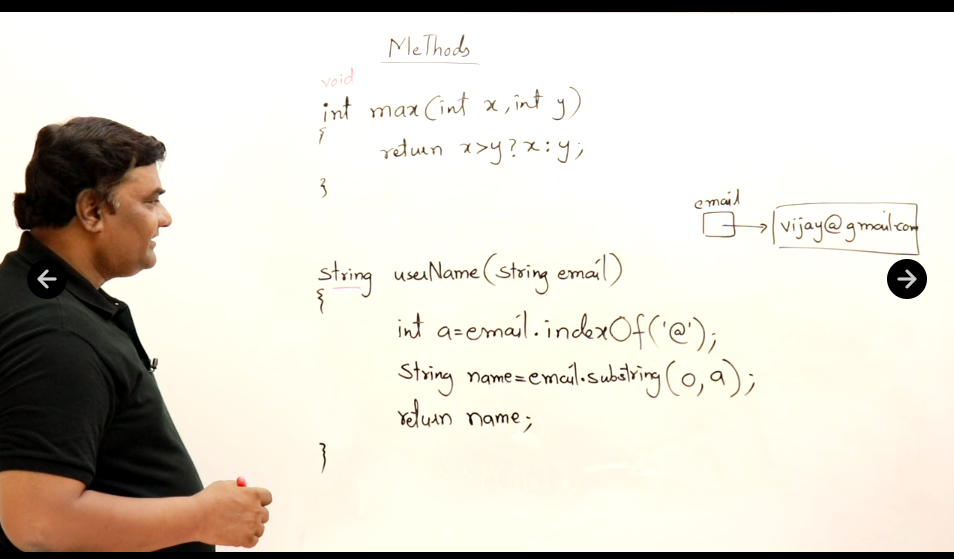 MeThods
void
int max(int x, int y)
{
return x>y?x:y;
}
email
vijay@gmail.com
String userName(String email)
{
int a=email.indexOf('@');
String name=email.substring(0,a);
return name;
}